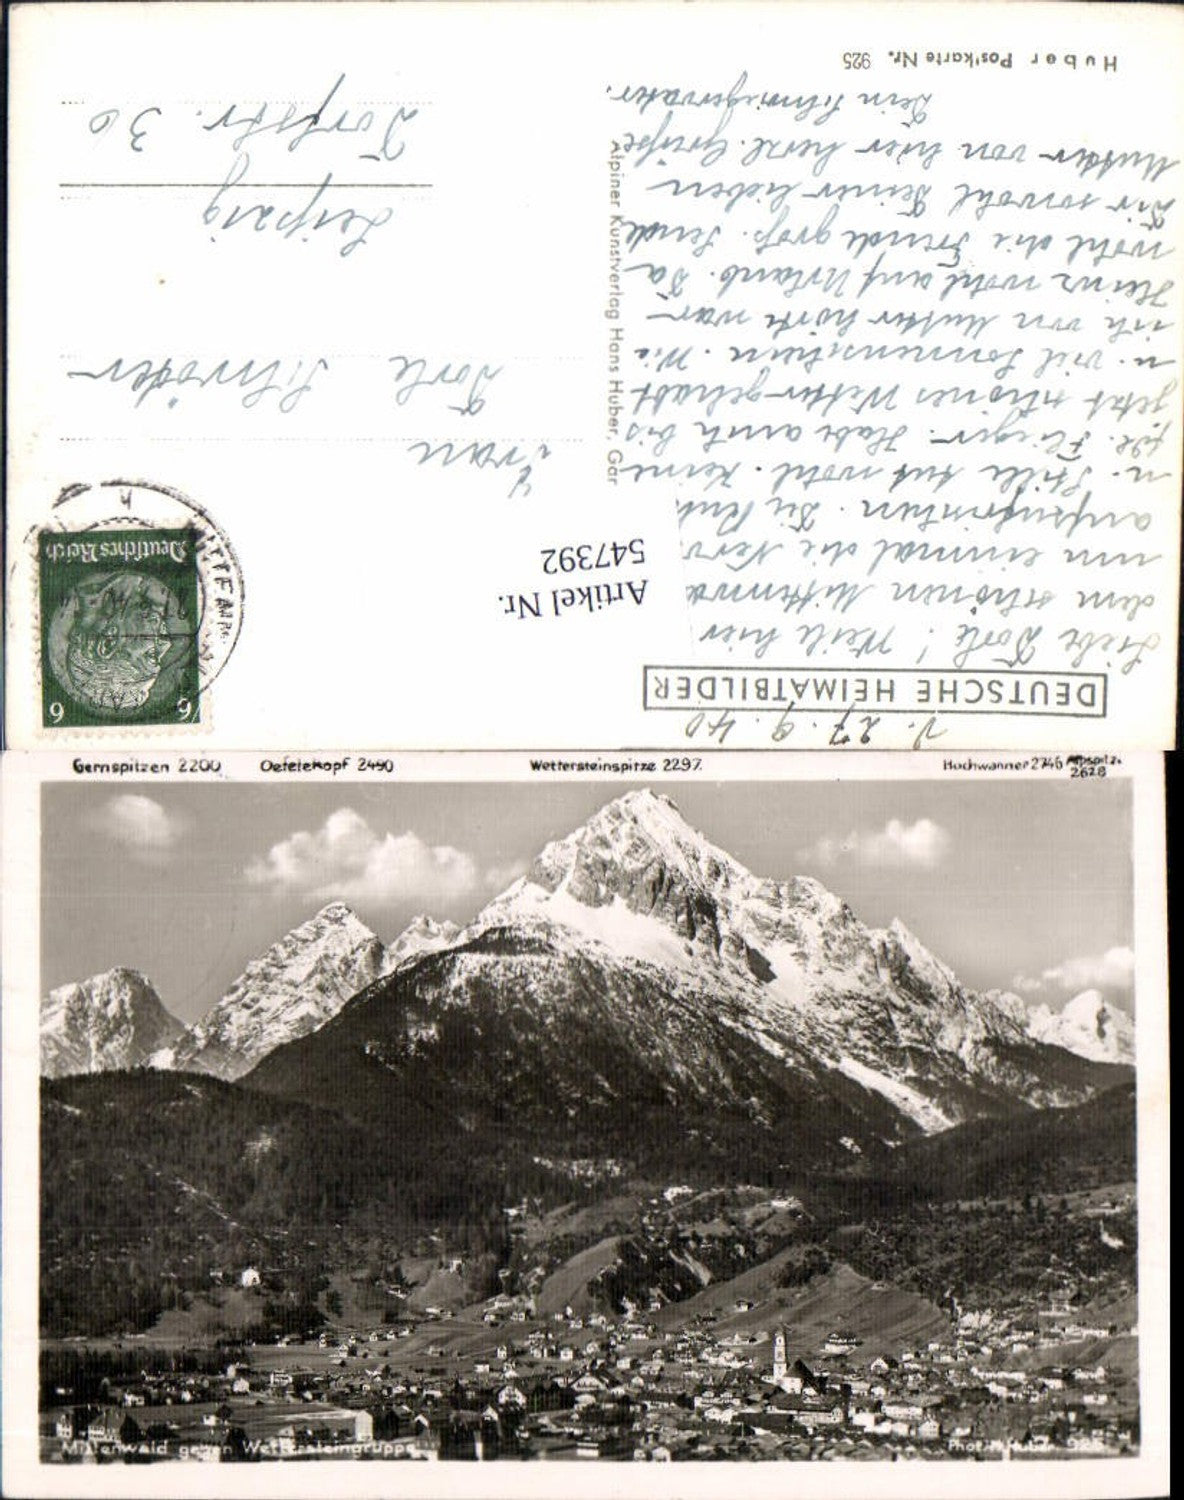 d. 27.9.40
DEUTSCHE HEIMATBILDER
Liebe Dorle! Weile hier
dem schönen
um einmal die
aufzufrischen. Die
u. Stille tut wohl. Keine
Flieger. Habe auch bis
jetzt schönes Wetter gehabt
u. viel Sonnenschein. Wie
ich von Mutter hörte war
Heinz wohl auf Urlaub. Da
wohl die Freude groß. Sende
Dir sowohl Deiner lieben
Mutter von hier herzl. Grüße
Dein Schwiegervater.
Huber Postkarte Nr. 925
Alpiner Kunstverlag Hans Huber, Gar
Artikel Nr.
547392
6 6
Deutsches Reich
Frau
Dorle Schröder
Leipzig
Dorfstr. 36
Gernspitzen 2200 Oefelekopf 2490 Wettersteinspitze 2297. Hochwanner 2746 Alpspitz.
2628
Mittenwald gegen Wettersteingruppe Phot. H. Huber 925